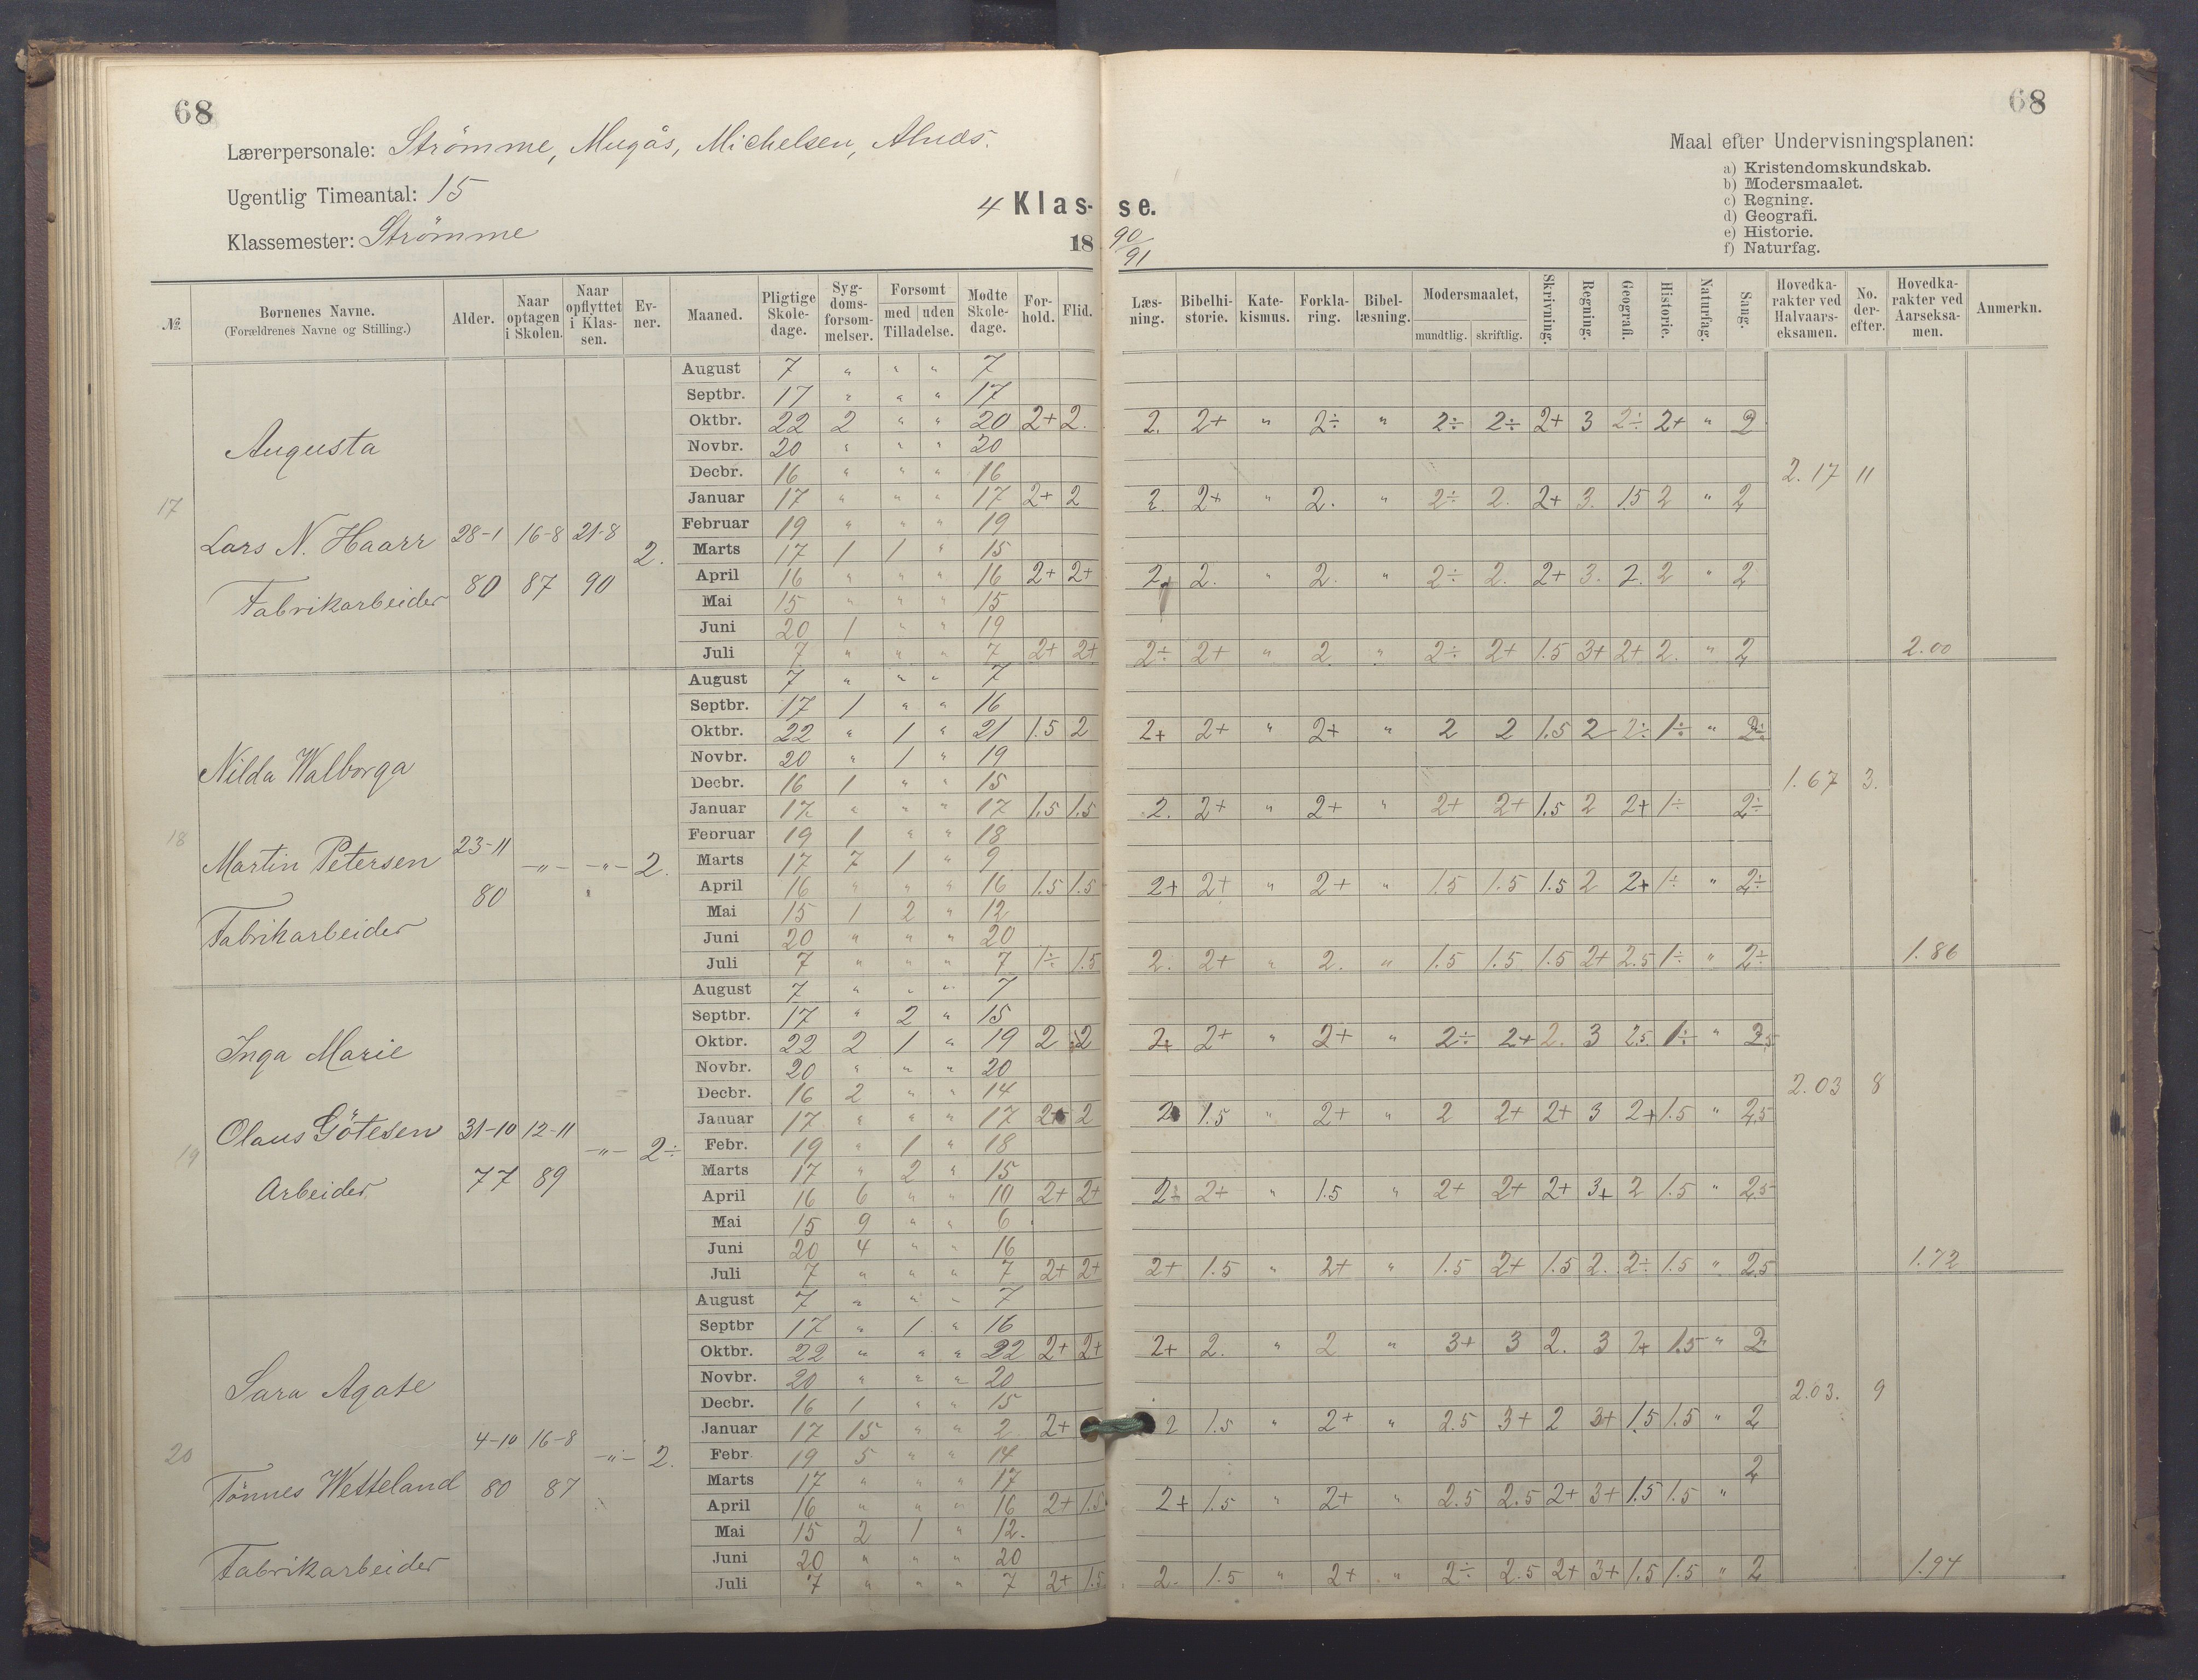 68
68
Lærerpersonale: Strömme, Mugås, Michelsen,
Ugentlig Timeantal: 15
Klassemester: Strömme
4 Klas- se.
18 90/91
Maal efter Undervisningsplanen:
a) Kristendomskundskab.
b) Modersmaalet.
c) Regning.
d) Geografi.
e) Historie.
f) Naturfag.
№ | Børnenes Navne. (Forældrenes Navne og Stilling.) | Alder. | Naar optagen i Skolen. | Naar opflyttet i Klassen. | Evner. | Maaned. | Pligtige Skoledage. | Sygdomsforsømmelser. | Forsømt med | uden Tilladelse. | Mødte Skoledage. | Forhold. | Flid. | Læsning. | Bibelhistorie. | Katekismus. | Forklaring. | Bibellæsning. | Modersmaalet, mundtlig. | skriftlig. | Skrivning. | Regning. | Geografi. | Historie. | Naturfag. | Sang. | Hovedkarakter ved Halvaarseksamen. | No. derefter. | Hovedkarakter ved Aarseksamen. | Anmerkn.
17
Augusta
Lars N. Haarr 28-1 16-8 21-8 2.
Fabrikarbeider 80 87 90
August 7 " " " 7
Septbr. 17 " " " 17
Oktbr. 22 2 " " 20 2+ 2. 2. 2+ " 2÷ " 2÷ 2÷ 2+ 3 2÷ 2+ " 2
Novbr. 20 " " " 20
Decbr. 16 " " " 16 2.17 11
Januar 17 " " " 17 2+ 2 2. 2+ " 2. " 2÷ 2. 2+ 3. 15 2 " 2
Februar 19 " " " 19
Marts 17 1 1 " 15
April 16 " " " 16 2+ 2+ 2+ 2. " 2. " 2÷ 2. 2+ 3. 2. 2 " 2
Mai 15 " " " 15
Juni 20 1 " " 19
Juli 7 " " " 7 2+ 2+ 2÷ 2+ " 2 " 2÷ 2+ 1.5 3+ 2+ 2. " 2 2.00
18
Nilda Walborga
Martin Petersen 23-11 -"- -"- 2.
80
Fabrikarbeider
August 7 " " " 7
Septbr. 17 1 " " 16
Oktbr. 22 " 1 " 21 1.5 2 2+ 2+ " 2+ " 2 2 1.5 2 2÷ 1÷ " 2÷
Novbr. 20 " 1 " 19
Decbr. 16 1 " " 15 1.67 3.
Januar 17 " " " 17 1.5 1.5 2. 2+ " 2+ " 2+ 2+ 1.5 2 2+ 1÷ 2÷
Februar 19 1 " " 18
Marts 17 7 1 " 9
April 16 " " " 16 1.5 1.5 2+ 2+ " 2+ " 1.5 1.5 1.5 2 2+ 1÷ " 2÷
Mai 15 1 2 " 12
Juni 20 " " " 20
Juli 7 " " " 7 1÷ 1.5 2. 2+ " 2. " 1.5 1.5 1.5 2+ 2.5 1÷ " 2÷ 1.86
19
Inga Marie
Olaus Götesen 31-10 12-11 -"- 2÷
Arbeider 77 89
August 7 " " " 7
Septbr. 17 " 2 " 15
Oktbr. 22 2 1 " 19 2 2 2+ 2+ " 2+ " 2÷ 2+ 2. 3 2.5 1÷ " 2,5
Novbr. 20 " " " 20
Decbr. 16 2 " " 14 2.03 8
Januar 17 " " " 17 2+ 2 2 1.5 " 2+ " 2 2+ 2+ 3 2+ 1.5 " 2,5
Febr. 19 " 1 " 18
Marts 17 " 2 " 15
April 16 6 " " 10 2+ 2+ 2÷ 2+ " 1.5 " 2+ 2+ 2+ 3+ 2 1.5 " 2,5
Mai 15 9 " " 6
Juni 20 4 " " 16
Juli 7 " " " 7 2+ 2+ 2+ 1.5 " 2+ " 1.5 2+ 1.5 2. 2÷ 1.5 " 2,5 1.72
20
Sara Agate
4-10 16-8 -"- 2.
Tönnes Wetteland 80 87
Fabrikarbeider
August 7 " " " 7
Septbr 17 " 1 " 16
Oktbr. 22 " " " 22 2+ 2+ 2+ 2. " 2 " 3+ 3 2. 3 2+ 1.5 " 2
Novbr. 20 " " " 20
Decbr. 16 1 " " 15 2.03. 9
Januar 17 15 " " 2 2+ 2 1.5 " 2+ " 2.5 3+ 2 3+ 1.5 1.5 " 2
Febr. 19 5 " " 14
Marts 17 " " " 17
April 16 " " " 16 2+ 1.5 2+ 1.5 " 2+ " 2.5 2.5 2+ 3+ 1.5 1.5 " 2
Mai 15 2 1 " 12.
Juni 20 " " " 20
Juli 7 " " " 7 2+ 1.5 2. 1.5 " 2+ " 2÷ 2.5 2+ 3+ 1.5 1.5 " 2 1.94